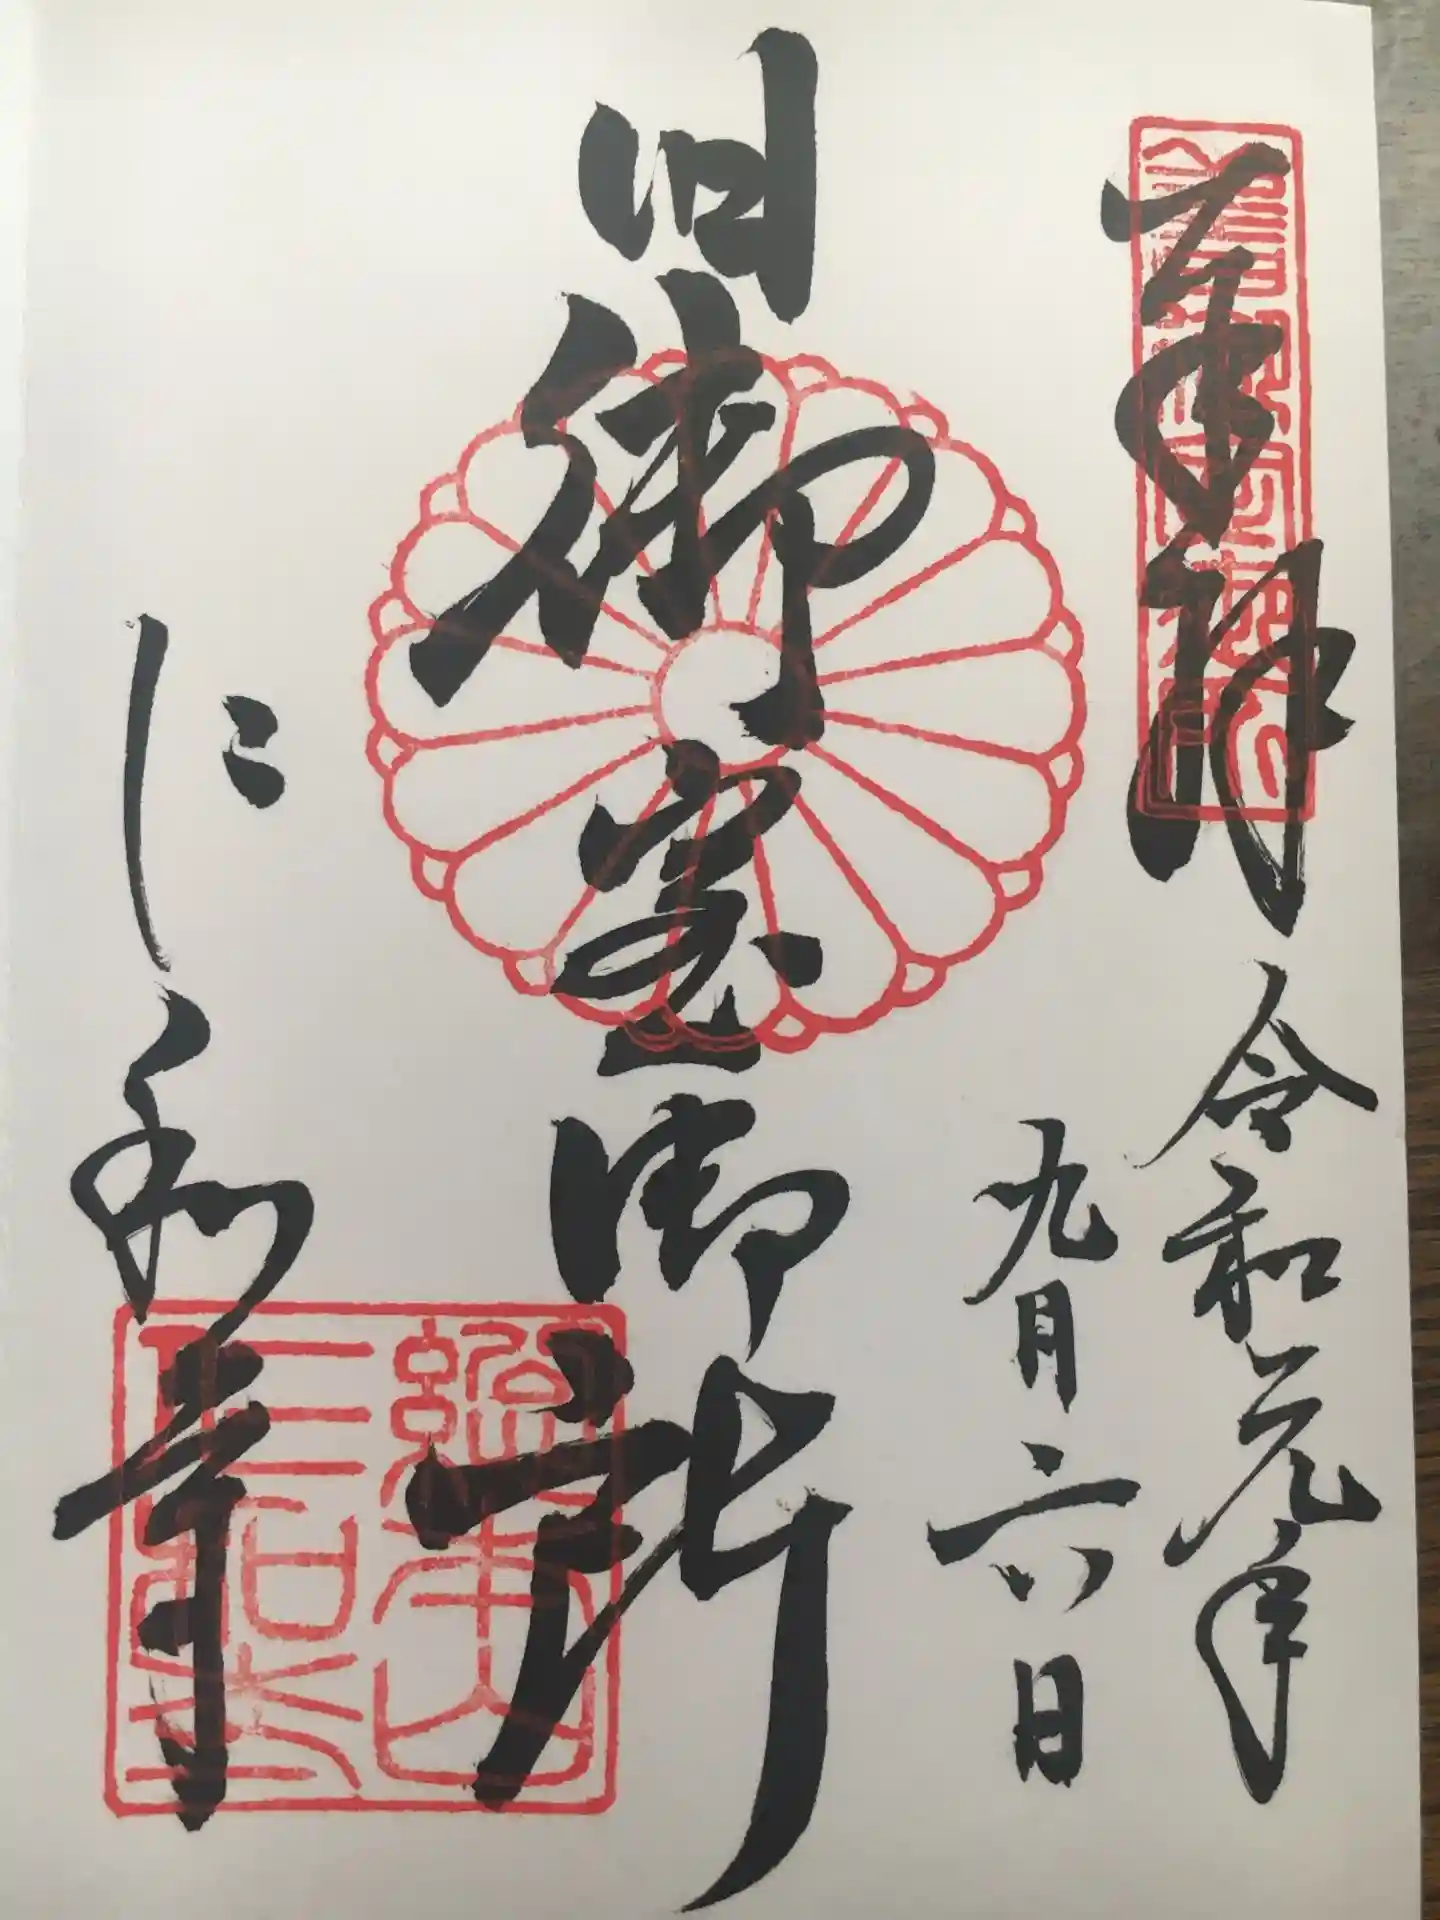 奉拝
令和元年
九月六日
旧御室御所
仁和寺
総本山
仁和寺